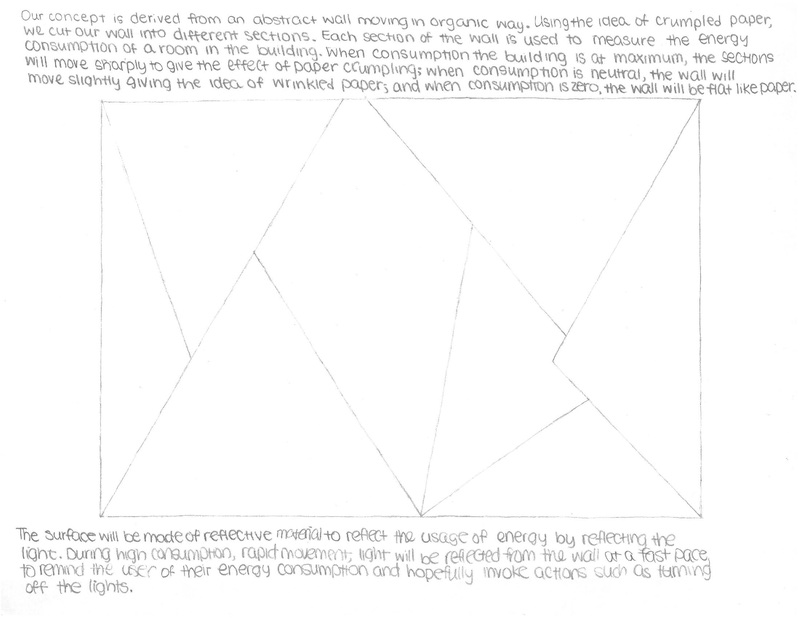 Our concept is derived from an abstract wall moving in organic way. Using the idea of crumpled paper,
we cut our wall into different sections. Each section of the wall is used to measure the energy
consumption of a room in the building. When consumption the building is at maximum, the sections
will move sharply to give the effect of paper crumpling; when consumption is neutral, the wall will
move slightly giving the idea of wrinkled paper; and when consumption is zero, the wall will be flat like paper.
The surface will be made of reflective material to reflect the usage of energy by reflecting the
light. During high consumption, rapid movement; light will be reflected from the wall at a fast pace,
to remind the user of their energy consumption and hopefully invoke actions such as turning
off the lights.